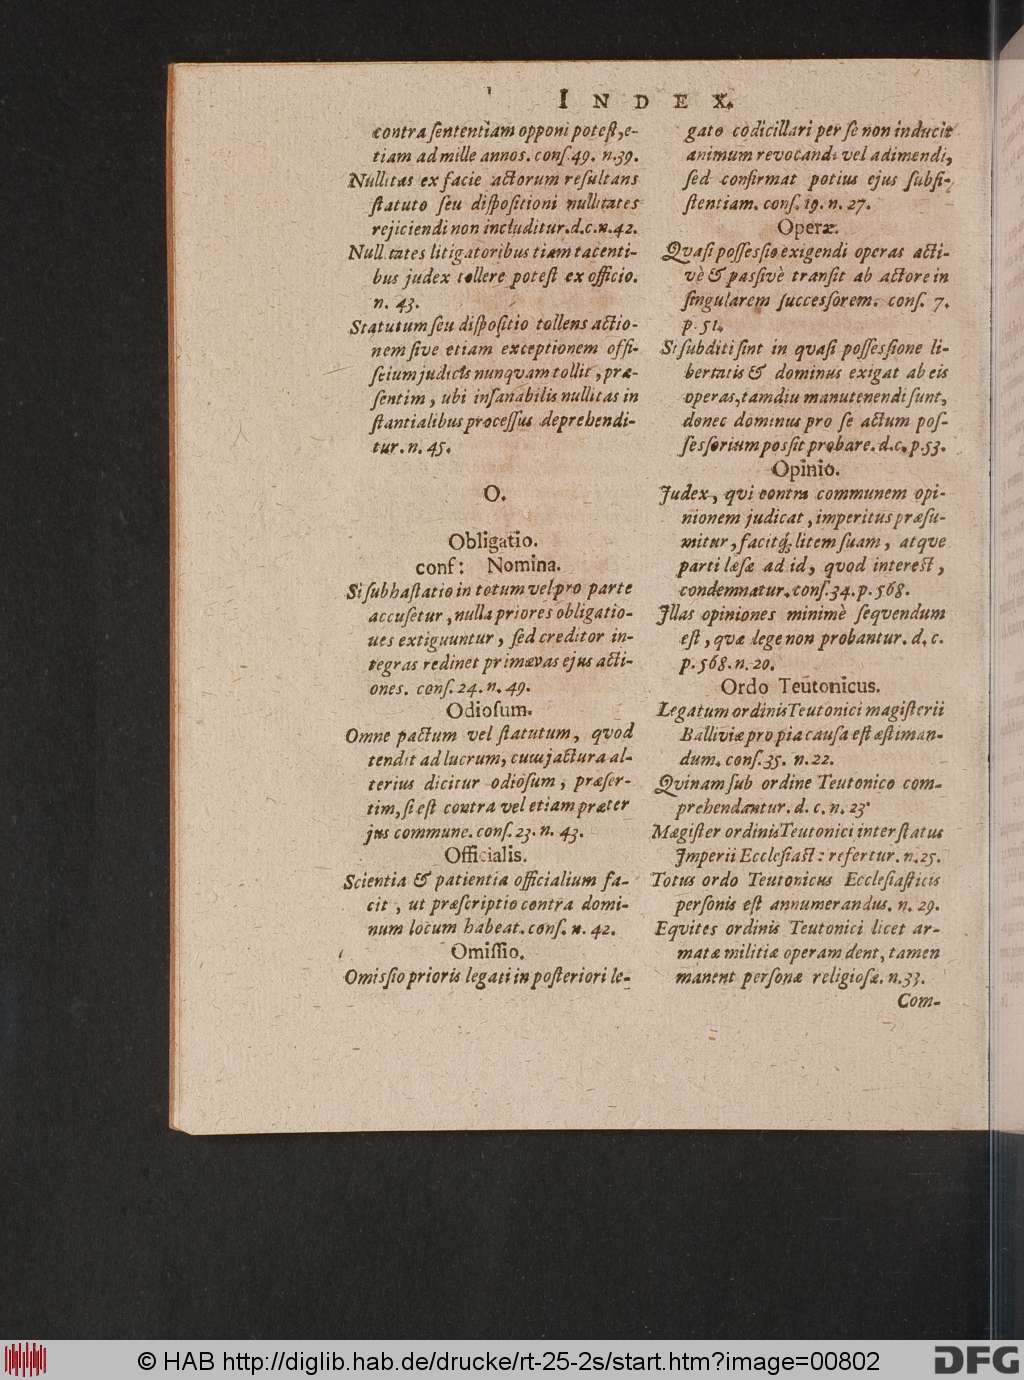 INDEX.
contra ſententiam opponi poteſt, e-
tiam ad mille annos. conſ. 49. n. 39.
Nullitas ex facie actorum reſultans
ſtatuto ſeu diſpoſitioni nullitates
rejiciendi non includitur. d. c. n. 42.
Null tates litigatoribus tiam tacenti-
bus judex tollere poteſt ex officio.
n. 43.
Statutum ſeu diſpoſitio tollens actio-
nem ſive etiam exceptionem offi-
ſcium judicis nunquam tollit, præ-
ſentim, ubi inſanabilis nullitas in
ſtantialibus proceſſus deprehendi-
tur. n. 45.
O.
Obligatio.
conf: Nomina.
Si ſubhaſtatio in totum vel pro parte
accuſetur, nulla priores obligatio-
ues extiguuntur, ſed creditor in-
tegras redinet primævas ejus acti-
ones. conſ. 24. n. 49.
Odioſum.
Omne pactum vel ſtatutum, qvod
tendit ad lucrum, cum jactura al-
terius dicitur odioſum, præſer-
tim, ſi eſt contra vel etiam præter
jus commune. conſ. 23. n. 43.
Officialis.
Scientia & patientia officialium fa-
cit, ut præſcriptio contra domi-
num locum habeat. conſ. n. 42.
Omiſſio.
Omiſſio prioris legati in poſteriori le-
gato codicillari per ſe non inducit
animum revocandi vel adimendi,
ſed confirmat potius ejus ſubſi-
ſtentiam. conſ. 19. n. 27.
Operæ.
Qvaſi poſſeſſio exigendi operas acti-
vè & paſſivè tranſit ab actore in
ſingularem ſucceſſorem. conſ. 7.
p. 51.
Si ſubditi ſint in qvaſi poſſeſſione li-
bertatis & dominus exigat ab eis
operas, tamdiu manutenendi ſunt,
donec dominus pro ſe actum poſ-
ſeſſorium poſſit probare. d. c. p. 53.
Opinio.
Judex, qvi contra communem opi-
nionem judicat, imperitus præſu-
mitur, facitq́; litem ſuam, atqve
parti læſæ ad id, qvod intereſt,
condemnatur. conſ. 34. p. 568.
Illas opiniones minimè ſeqvendum
eſt, qvæ lege non probantur. d. c.
p. 568. n. 20.
Ordo Teutonicus.
Legatum ordinis Teutonici magiſterii
Balliviæ pro pia cauſa eſt æſtiman-
dum. conſ. 35. n. 22.
Qvinam ſub ordine Teutonico com-
prehendantur. d. c. n. 23
Magiſter ordinis Teutonici inter ſtatus
Imperii Eccleſiaſt: refertur. n. 25.
Totus ordo Teutonicus Eccleſiaſticis
perſonis eſt annumerandus. n. 29.
Eqvites ordinis Teutonici licet ar-
matæ militiæ operam dent, tamen
manent perſonæ religioſæ. n. 33.
Com-
© HAB http://diglib.hab.de/drucke/rt-25-2s/start.htm?image=00802
DFG